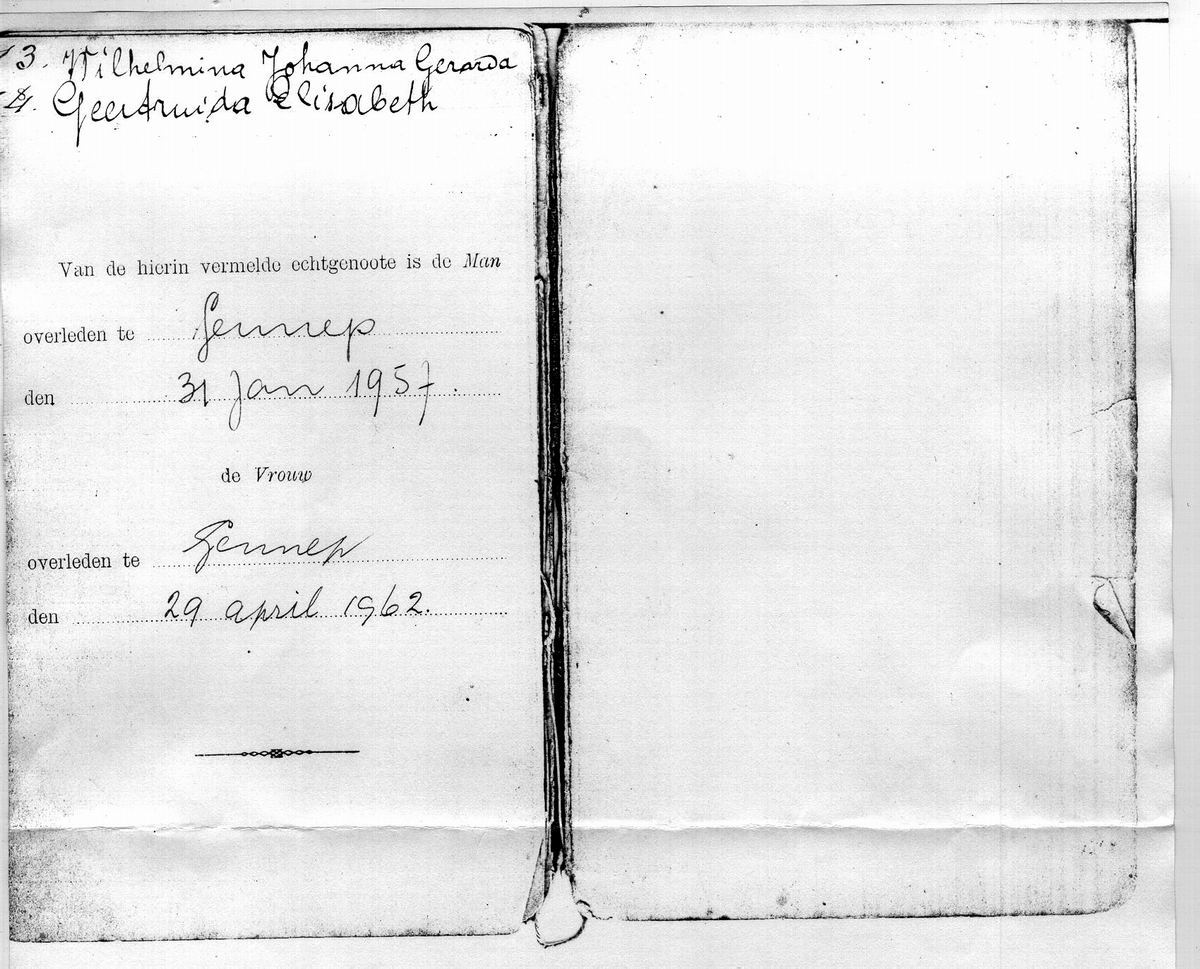 3. Wilhelmina Johanna Gerarda
4. Geertruida Elisabeth
Van de hierin vermelde echtgenoote is de Man
overleden te Gennep
den 31 Jan 1957.
de Vrouw
overleden te Gennep
den 29 april 1962.